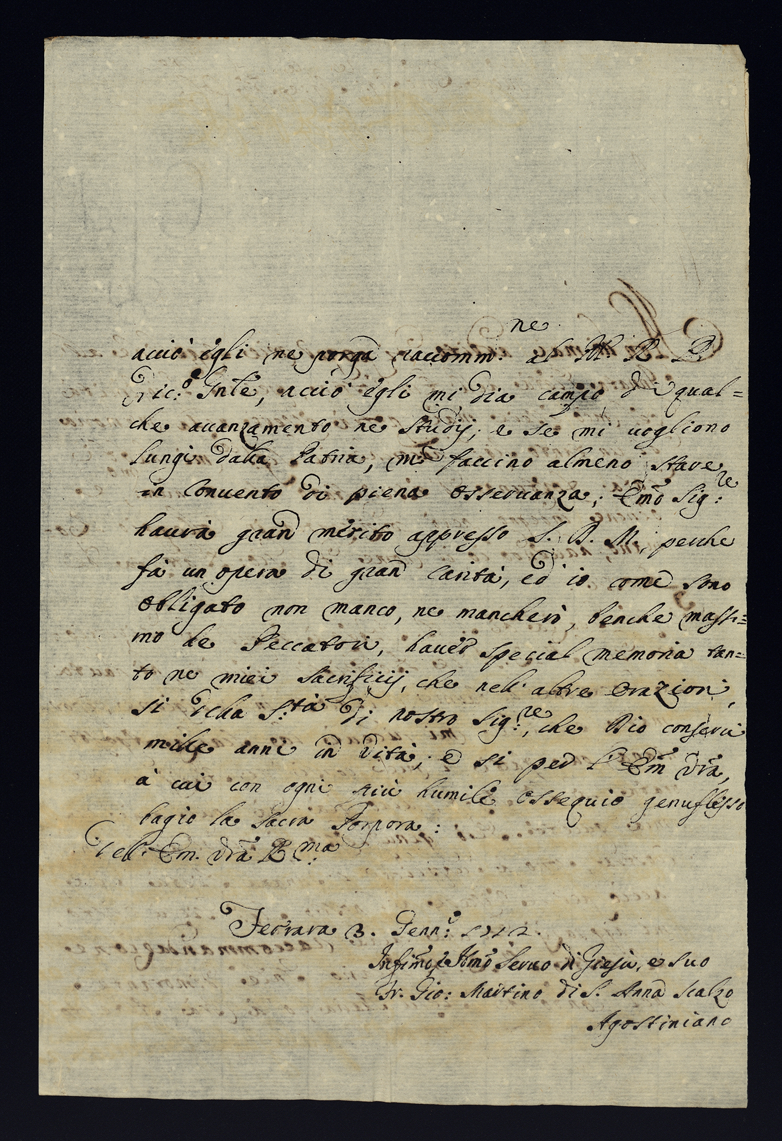 acciò egli ne porga raccomm.ne al M. R. P.
Vic.o Gn͂le, acciò egli mi dia campo di qual=
che avanzamento ne Studij; e se mi vogliono
lungi dalla Patria, mi faccino almeno stare
in Convento di piena osservanza; Em̃o Sig.re
haurà gran merito appresso S. D. M. perche
fà un opera di gran Carità, ed io come sono
obligato non manco, ne mancherò, benche massi=
mo de Peccatori, haver special memoria tan=
to ne miei Sacrificij, che nell' altre Orazioni,
si della S.tà di nostro Sig.re, che Dio conservi
mille anni in vita, e si per l' Em.a Vrã,
a cui con ogni più humile ossequio genuflesso
bagio la Sacra Porpora:
Dell' Em. Vrã R.ma
Ferrara 3. Genn.o 1712.
Infimo Hmo Servo di Giesù, e suo
Fr. Gio: Martino di S. Anna Scalzo
Agostiniano